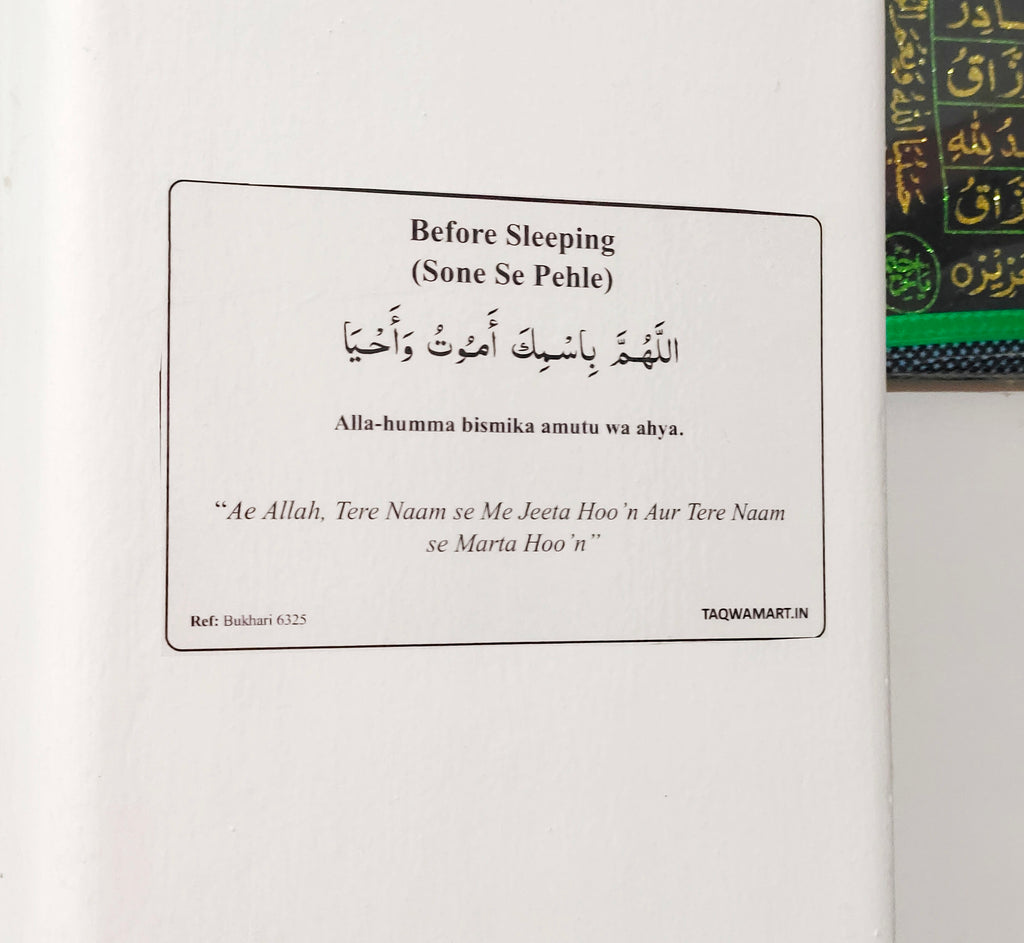 Before Sleeping
(Sone Se Pehle)
اللَّهُمَّ بِاسْمِكَ أَمُوْتُ وَأَحْيَا
Alla-humma bismika amutu wa ahya.
“Ae Allah, Tere Naam se Me Jeeta Hoo’n Aur Tere Naam
se Marta Hoo’n”
Ref: Bukhari 6325
TAQWAMART.IN
حَسْبُنَا اللهُ وَنِعْمَ